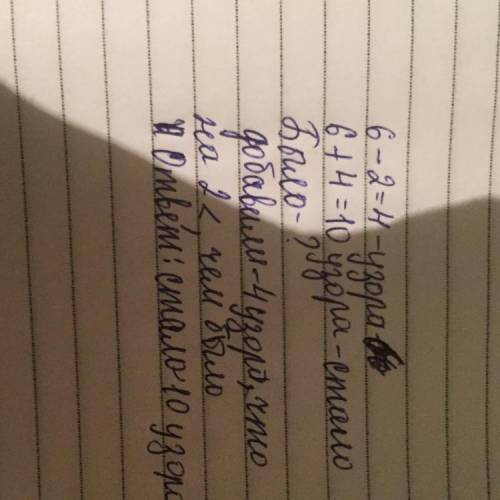 6 - 2 = 4 - узора
6 + 4 = 10 узора - стало
Было - ?
добавили - 4 узора, что
на 2 < чем было
Ответ: стало 10 узора